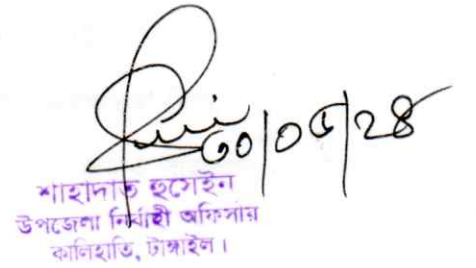 ৩০/০৫/২৪
শাহাদাত হুসেইন
উপজেলা নির্বাহী অফিসার
কালিহাতি, টাঙ্গাইল।